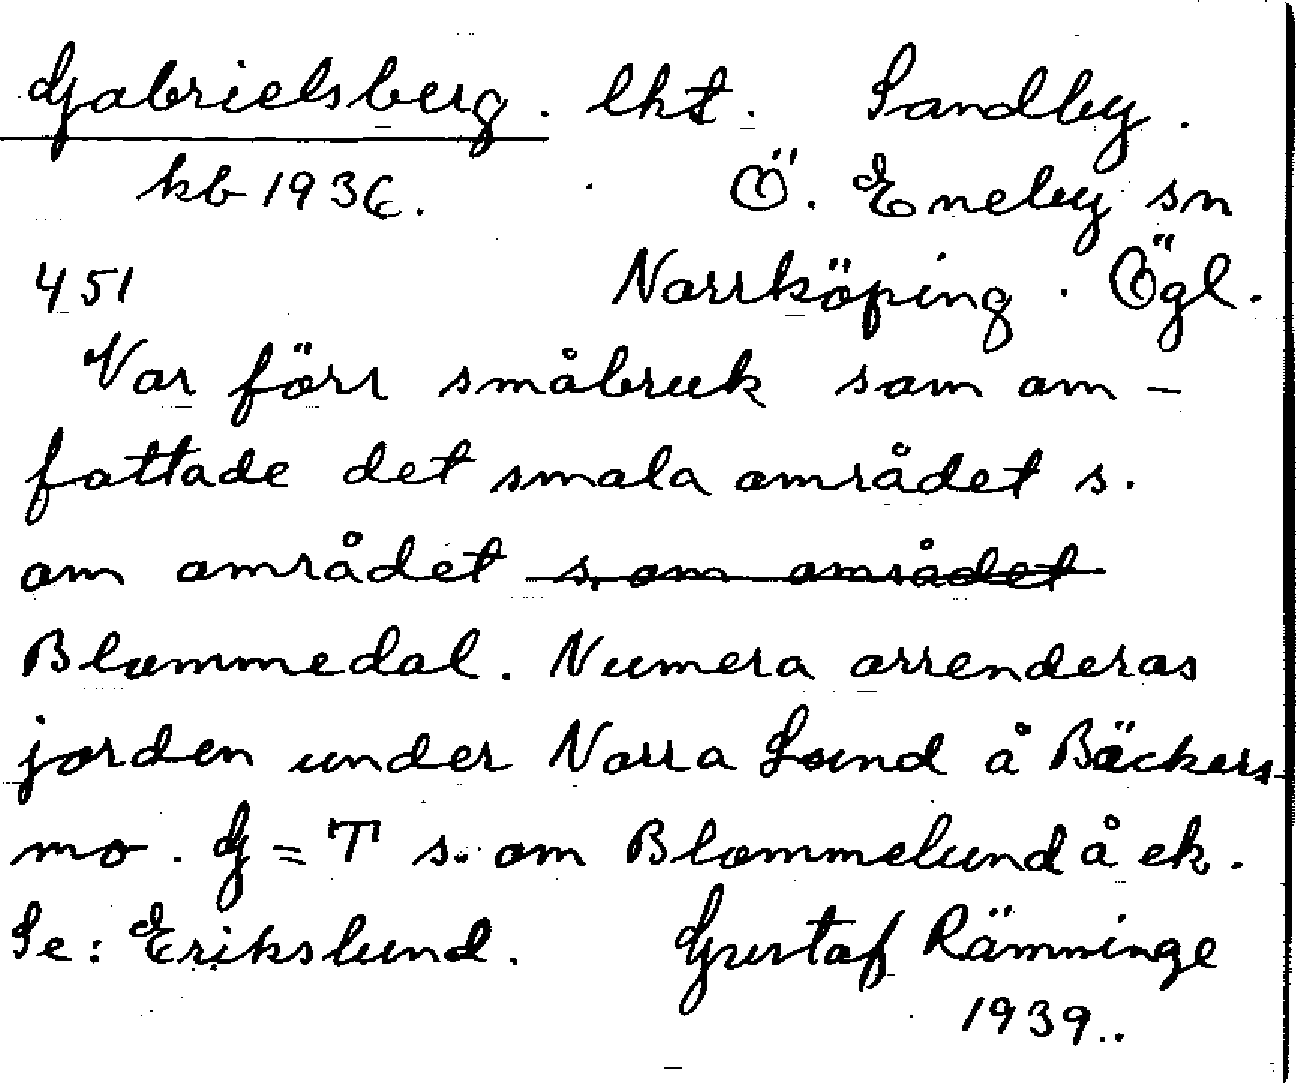 Gabrielsberg. lht. Sandby.
kb 1936. Ö. Eneby sn
451 Norrköping. Ögl.
Var förr småbruk som om-
fattade det smala området s.
om området s. om området
Blommedal. Numera arrenderas
jorden under Norra Lund å Bäckers
mo. G = T s. om Blommelund å ek.
Se: Erikslund. Gustaf Rämninge
1939..